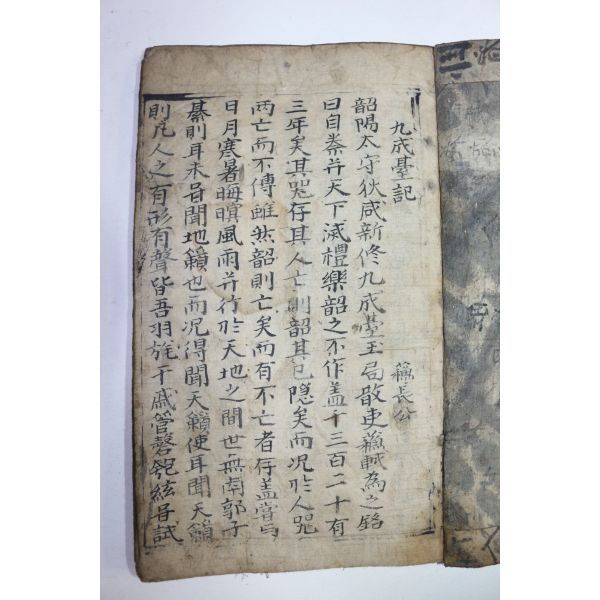 九成臺記 蘇長公
韶陽太守狄咸新修九成臺玉局散吏蘇軾為之銘
曰自秦并天下滅禮樂韶之不作盖千三百二十有
三年矣其器存其人亡則韶其已隐矣而况於人器
两亡而不傳雖然韶則亡矣而有不亡者存盖甞与
日月寒暑晦暝風雨并行於天地之間世無南郭子
綦則耳未甞聞地籟也而况得聞天籟使耳聞天籟
則凡人之有形有聲皆吾羽旄干戚管磬匏絃甞試